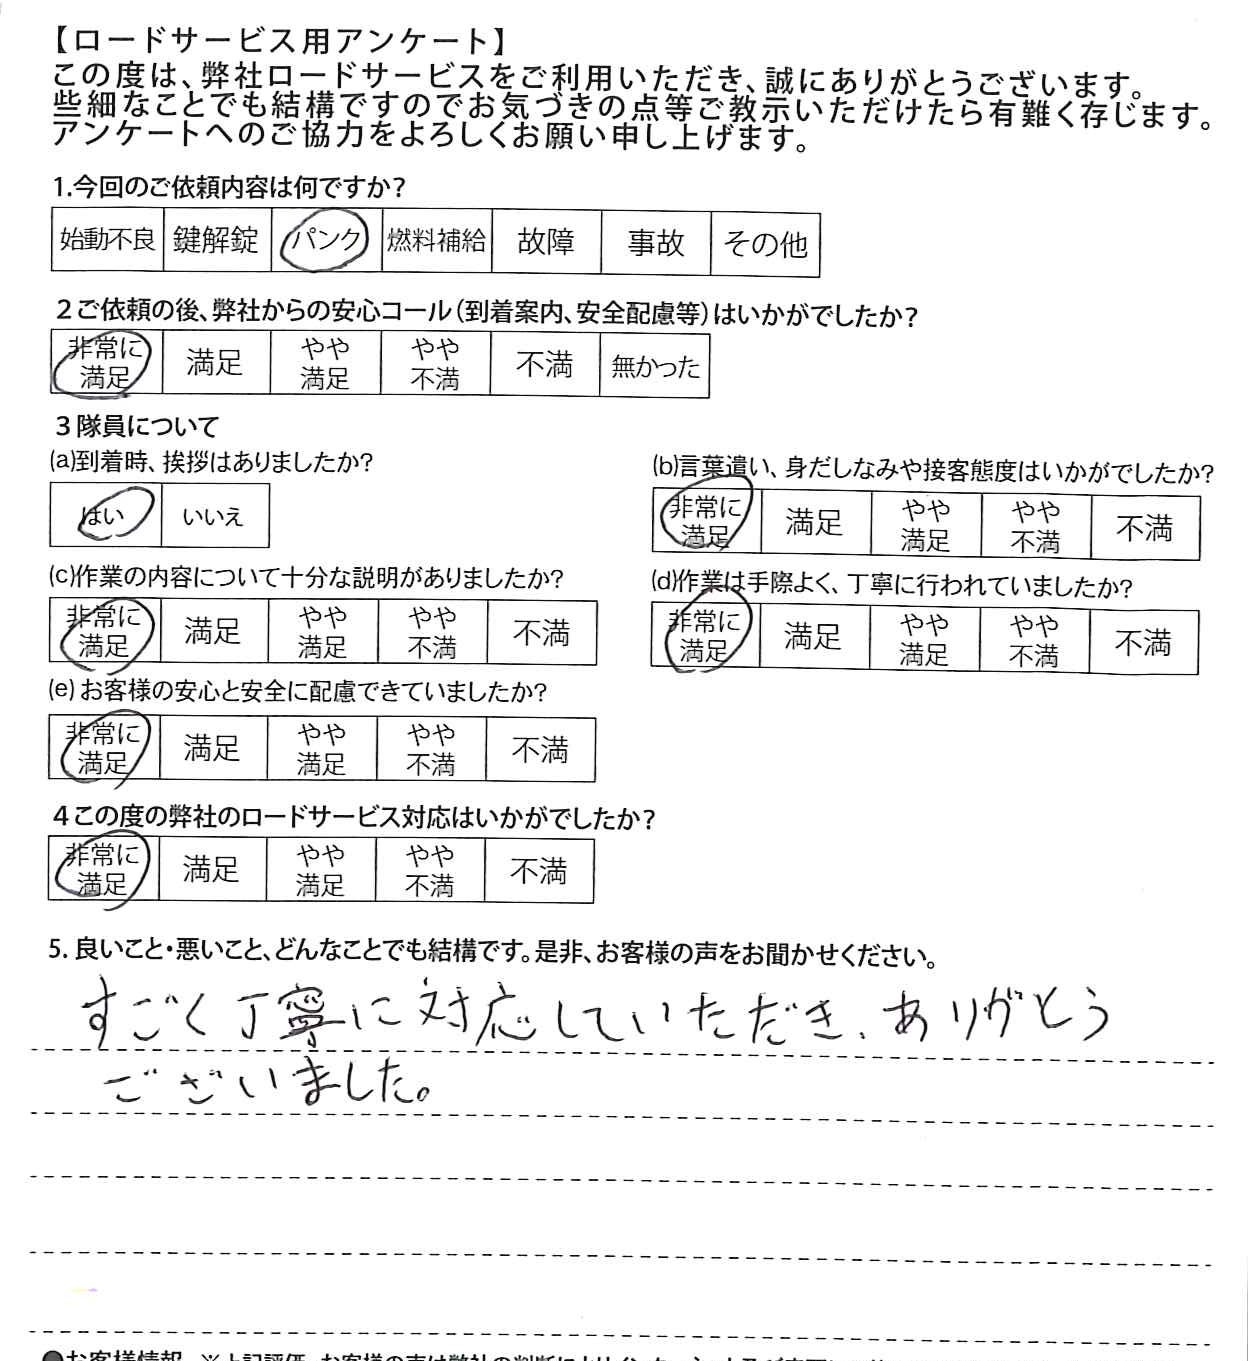 【ロードサービス用アンケート】
この度は、弊社ロードサービスをご利用いただき、誠にありがとうございます。
些細なことでも結構ですのでお気づきの点等ご教示いただけたら有難く存じます。
アンケートへのご協力をよろしくお願い申し上げます。
1.今回のご依頼内容は何ですか?
始動不良 鍵解錠 パンク 燃料補給 故障 事故 その他
2ご依頼の後、弊社からの安心コール(到着案内、安全配慮等)はいかがでしたか?
非常に満足 満足 やや満足 やや不満 不満 無かった
3隊員について
(a)到着時、挨拶はありましたか?
はい いいえ
(b)言葉遣い、身だしなみや接客態度はいかがでしたか?
非常に満足 満足 やや満足 やや不満 不満
(c)作業の内容について十分な説明がありましたか?
非常に満足 満足 やや満足 やや不満 不満
(d)作業は手際よく、丁寧に行われていましたか?
非常に満足 満足 やや満足 やや不満 不満
(e)お客様の安心と安全に配慮できていましたか?
非常に満足 満足 やや満足 やや不満 不満
4この度の弊社のロードサービス対応はいかがでしたか?
非常に満足 満足 やや満足 やや不満 不満
5. 良いこと・悪いこと、どんなことでも結構です。是非、お客様の声をお聞かせください。
すごく丁寧に対応していただき、ありがとう
ございました。
●お客様情報 ※上記評価、お客様の声は弊社の判断により